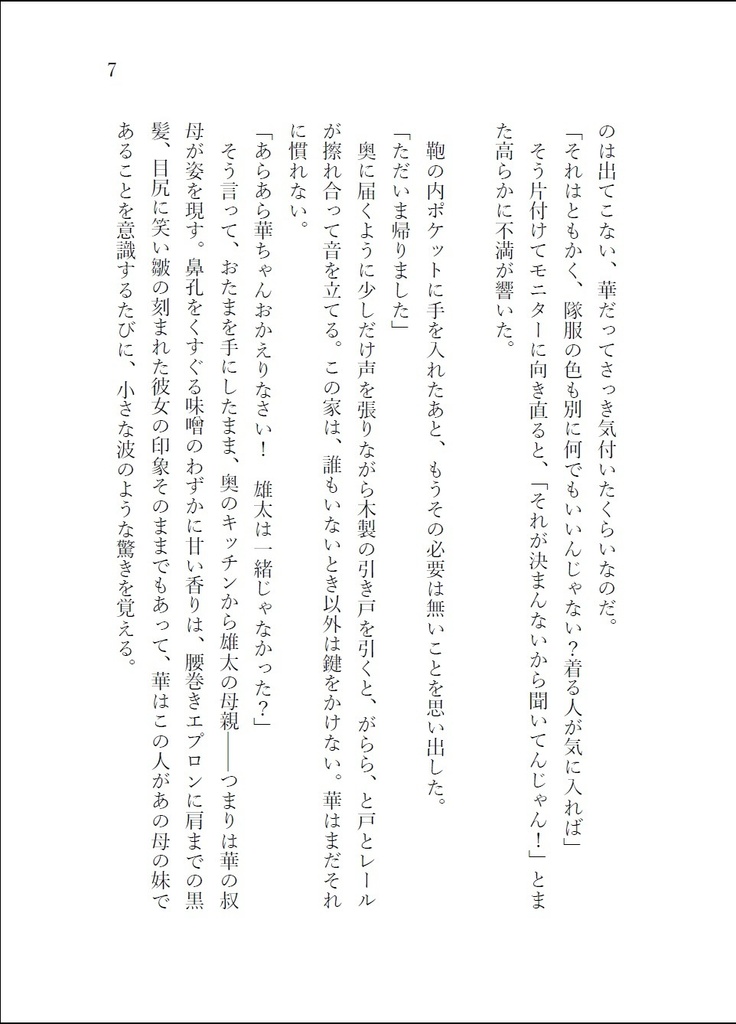 7
のは出てこない、華だってさっき気付いたくらいなのだ。
「それはともかく、隊服の色も別に何でもいいんじゃない？着る人が気に入れば」
　そう片付けてモニターに向き直ると、「それが決まんないから聞いてんじゃん！」とま
た高らかに不満が響いた。
　鞄の内ポケットに手を入れたあと、もうその必要は無いことを思い出した。
「ただいま帰りました」
　奥に届くように少しだけ声を張りながら木製の引き戸を引くと、がらら、と戸とレール
が擦れ合って音を立てる。この家は、誰もいないとき以外は鍵をかけない。華はまだそれ
に慣れない。
「あらあら華ちゃんおかえりなさい！　雄太は一緒じゃなかった？」
　そう言って、おたまを手にしたまま、奥のキッチンから雄太の母親――つまりは華の叔
母が姿を現す。鼻孔をくすぐる味噌のわずかに甘い香りは、腰巻きエプロンに肩までの黒
髪、目尻に笑い皺の刻まれた彼女の印象そのままでもあって、華はこの人があの母の妹で
あることを意識するたびに、小さな波のような驚きを覚える。